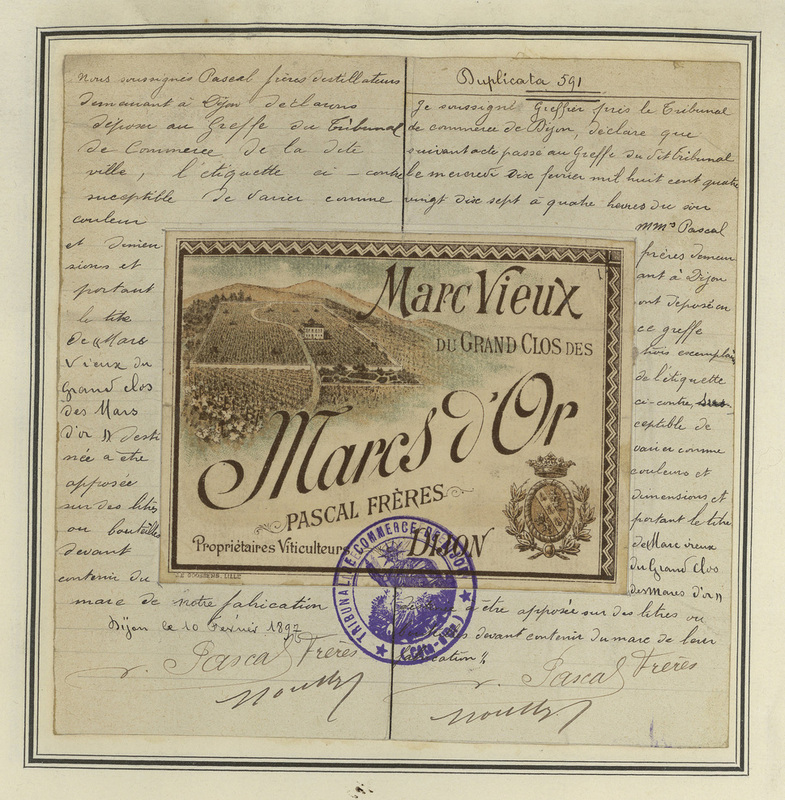 Nous soussignés Pascal frères distillateurs
demeurant à Dijon déclarons
déposer au Greffe du Tribunal
de Commerce de la dite
ville, l'étiquette ci-contre
susceptible de varier comme
couleur
et dimen
sions et
portant
le titre
de "Marc
Vieux du
Grand clos
des Mars
d'or" desti
née a être
apposée
sur des litres
ou bouteilles
devant
contenir du
marc de notre fabrication
Dijon le 10 Février 1897
Pascal Frères
Duplicata 591
Je soussigné Greffier près le Tribunal
de commerce de Dijon, déclare que
suivant acte passé au Greffe du dit Tribunal
le mercredi dix février mil huit cent quatre
vingt dix sept à quatre heures du soir
MMrs Pascal
frères demeur
ant à Dijon
ont déposé en
ce greffe
trois exemplaires
de l'étiquette
ci-contre, sus-
ceptible de
varier comme
couleurs et
dimensions et
portant le titre
de Marc vieux
du Grand Clos
des Marcs d'or"
à être apposée sur des litres ou
devant contenir du marc de leur
fabrication "
Pascal Frères
Marc Vieux
DU GRAND CLOS DES
Marcs d'Or
PASCAL FRÈRES
Propriétaires Viticulteurs DIJON
LILLE
TRIBUNAL DE COMMERCE DE DIJON
(Côte-d'Or)